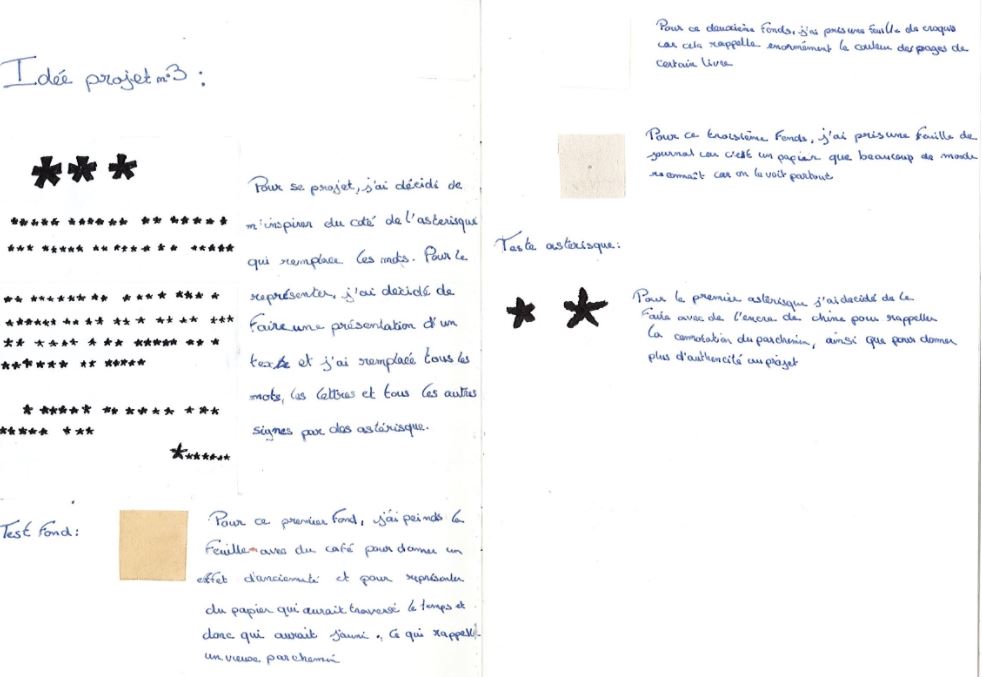 Idée projet n°3 :
Pour se projet, j'ai décidé de
m'inspirer du coté de l'asterisque
qui remplace les mots. Pour le
représenter, j'ai décidé de
faire une présentation d'un
texte et j'ai remplacé tous les
mots, les lettres et tous les autres
signes par des astérisque.
Test Fond :
Pour ce premier fond, j'ai peinds la
feuille avec du café pour donner un
effet d'ancienneté et pour représenter
du papier qui aurait traversé le temps et
donc qui aurait jauni. Ce qui rappelle
un vieux parchemin
Pour ce deuxième fonds, j'ai pris une feuille de croquis
car cela rappelle enormément la couleur des pages de
certain livre
Pour ce troisième fonds, j'ai pris une feuille de
journal car c'est un papier que beaucoup de monde
reconnaît car on le voit partout
Teste asterisque :
Pour le premier astérisque j'ai decidé de le
faire avec de l'encre de chine pour rappeller
la connotation du parchemin, ainsi que pour donner
plus d'authencité au projet